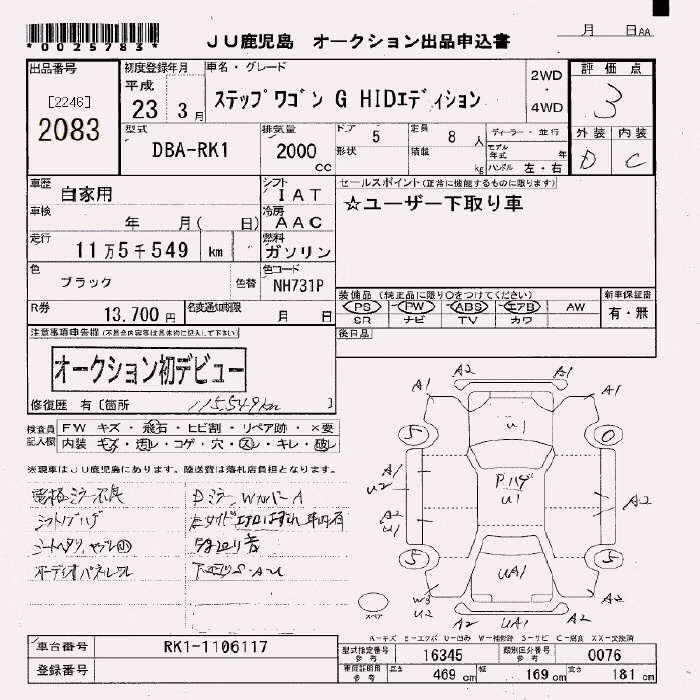 *0025783*
JU鹿児島 オークション出品申込書
月 日AA
出品番号
[2246]
2083
初度登録年月
平成
23 3月
車名・グレード
ステップワゴン G HIDエディション
2WD
・
4WD
評価点
3
外装 内装
D C
型式
DBA-RK1
排気量
2000
cc
ドア 5
形状
定員 8 人
積載 kg
ディーラー・並行
モデル年式 年
ハンドル 左・右
車歴 自家用
シフト IAT
車検 年 月( 日)
冷房 AAC
走行 11万5千549 km
燃料 ガソリン
色 ブラック 色替
色コード NH731P
R券 13,700円
名変通知期限 月 日
セールスポイント(正常に機能するものに限ります)
☆ユーザー下取り車
装備品(純正品に限り○をつけてください)
PS ・ PW ・ ABS ・ エアB AW
SR ナビ TV カワ
新車保証書
有・無
後日品
注意事項申告欄(不具合内容等は具体的に記入して下さい)
オークション初デビュー
修復歴 有〔箇所 115,549km 〕
検査員記入欄
FW キズ・飛石・ヒビ割・リペア跡・×要
内装 キズ・汚レ・コゲ・穴・スレ・キレ・破レ
※現車はJU鹿児島にあります。陸送費は落札店負担となります。
電格ミラー不良
オーディオパネルワレ
A1 A2 A2 A1
U1
5 0
A1
U2
A2
U1
Pハゲ
U1
A2
5 5
UA1
W3
U2
A2 UA1 A2
A2
スペア
A-キズ E-エクボ U-凹み W-補修跡 S-サビ C-腐食 XX-交換済
車台番号 RK1-1106117
登録番号
型式指定番号
参考
16345
類別区分番号
参考
0076
車検証明用
参考
長さ 469 cm 幅 169 cm 高さ 181 cm